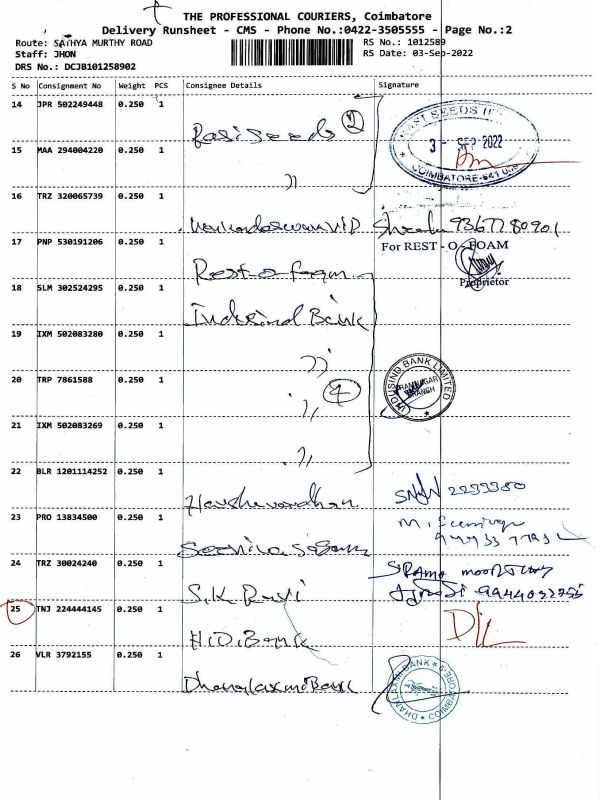 THE PROFESSIONAL COURIERS, Coimbatore
Delivery Runsheet - CMS - Phone No.:0422-3505555 - Page No.:2
Route: SATHYA MURTHY ROAD
RS No.: 1012589
Staff: JHON
RS Date: 03-Sep-2022
DRS No.: DCJB101258902
S No Consignment No Weight PCS Consignee Details Signature
14 JPR 502249448 0.250 1
Rasi Seeds 2
15 MAA 294004220 0.250 1
3 - SEP 2022
COIMBATORE-641
16 TRZ 320065739 0.250 1
9367780901
17 PNP 530191206 0.250 1
For REST - O - FOAM
Rest-o-foam
Proprietor
18 SLM 302524295 0.250 1
Indusind Bank
19 IXM 502083280 0.250 1
,,
20 TRP 7861588 0.250 1
,, 4
INDUSIND BANK LIMITED
BRANCH
21 IXM 502083269 0.250 1
,,
22 BLR 1201114252 0.250 1
Harshavardhan
23 PRO 13834500 0.250 1
24 TRZ 30024240 0.250 1
S.K. Ravi
25 TNJ 224444145 0.250 1
H.D. Bank
D/L
26 VLR 3792155 0.250 1
Dhanalaxmi Bank
DHANLAXMI BANK
COIMBATORE